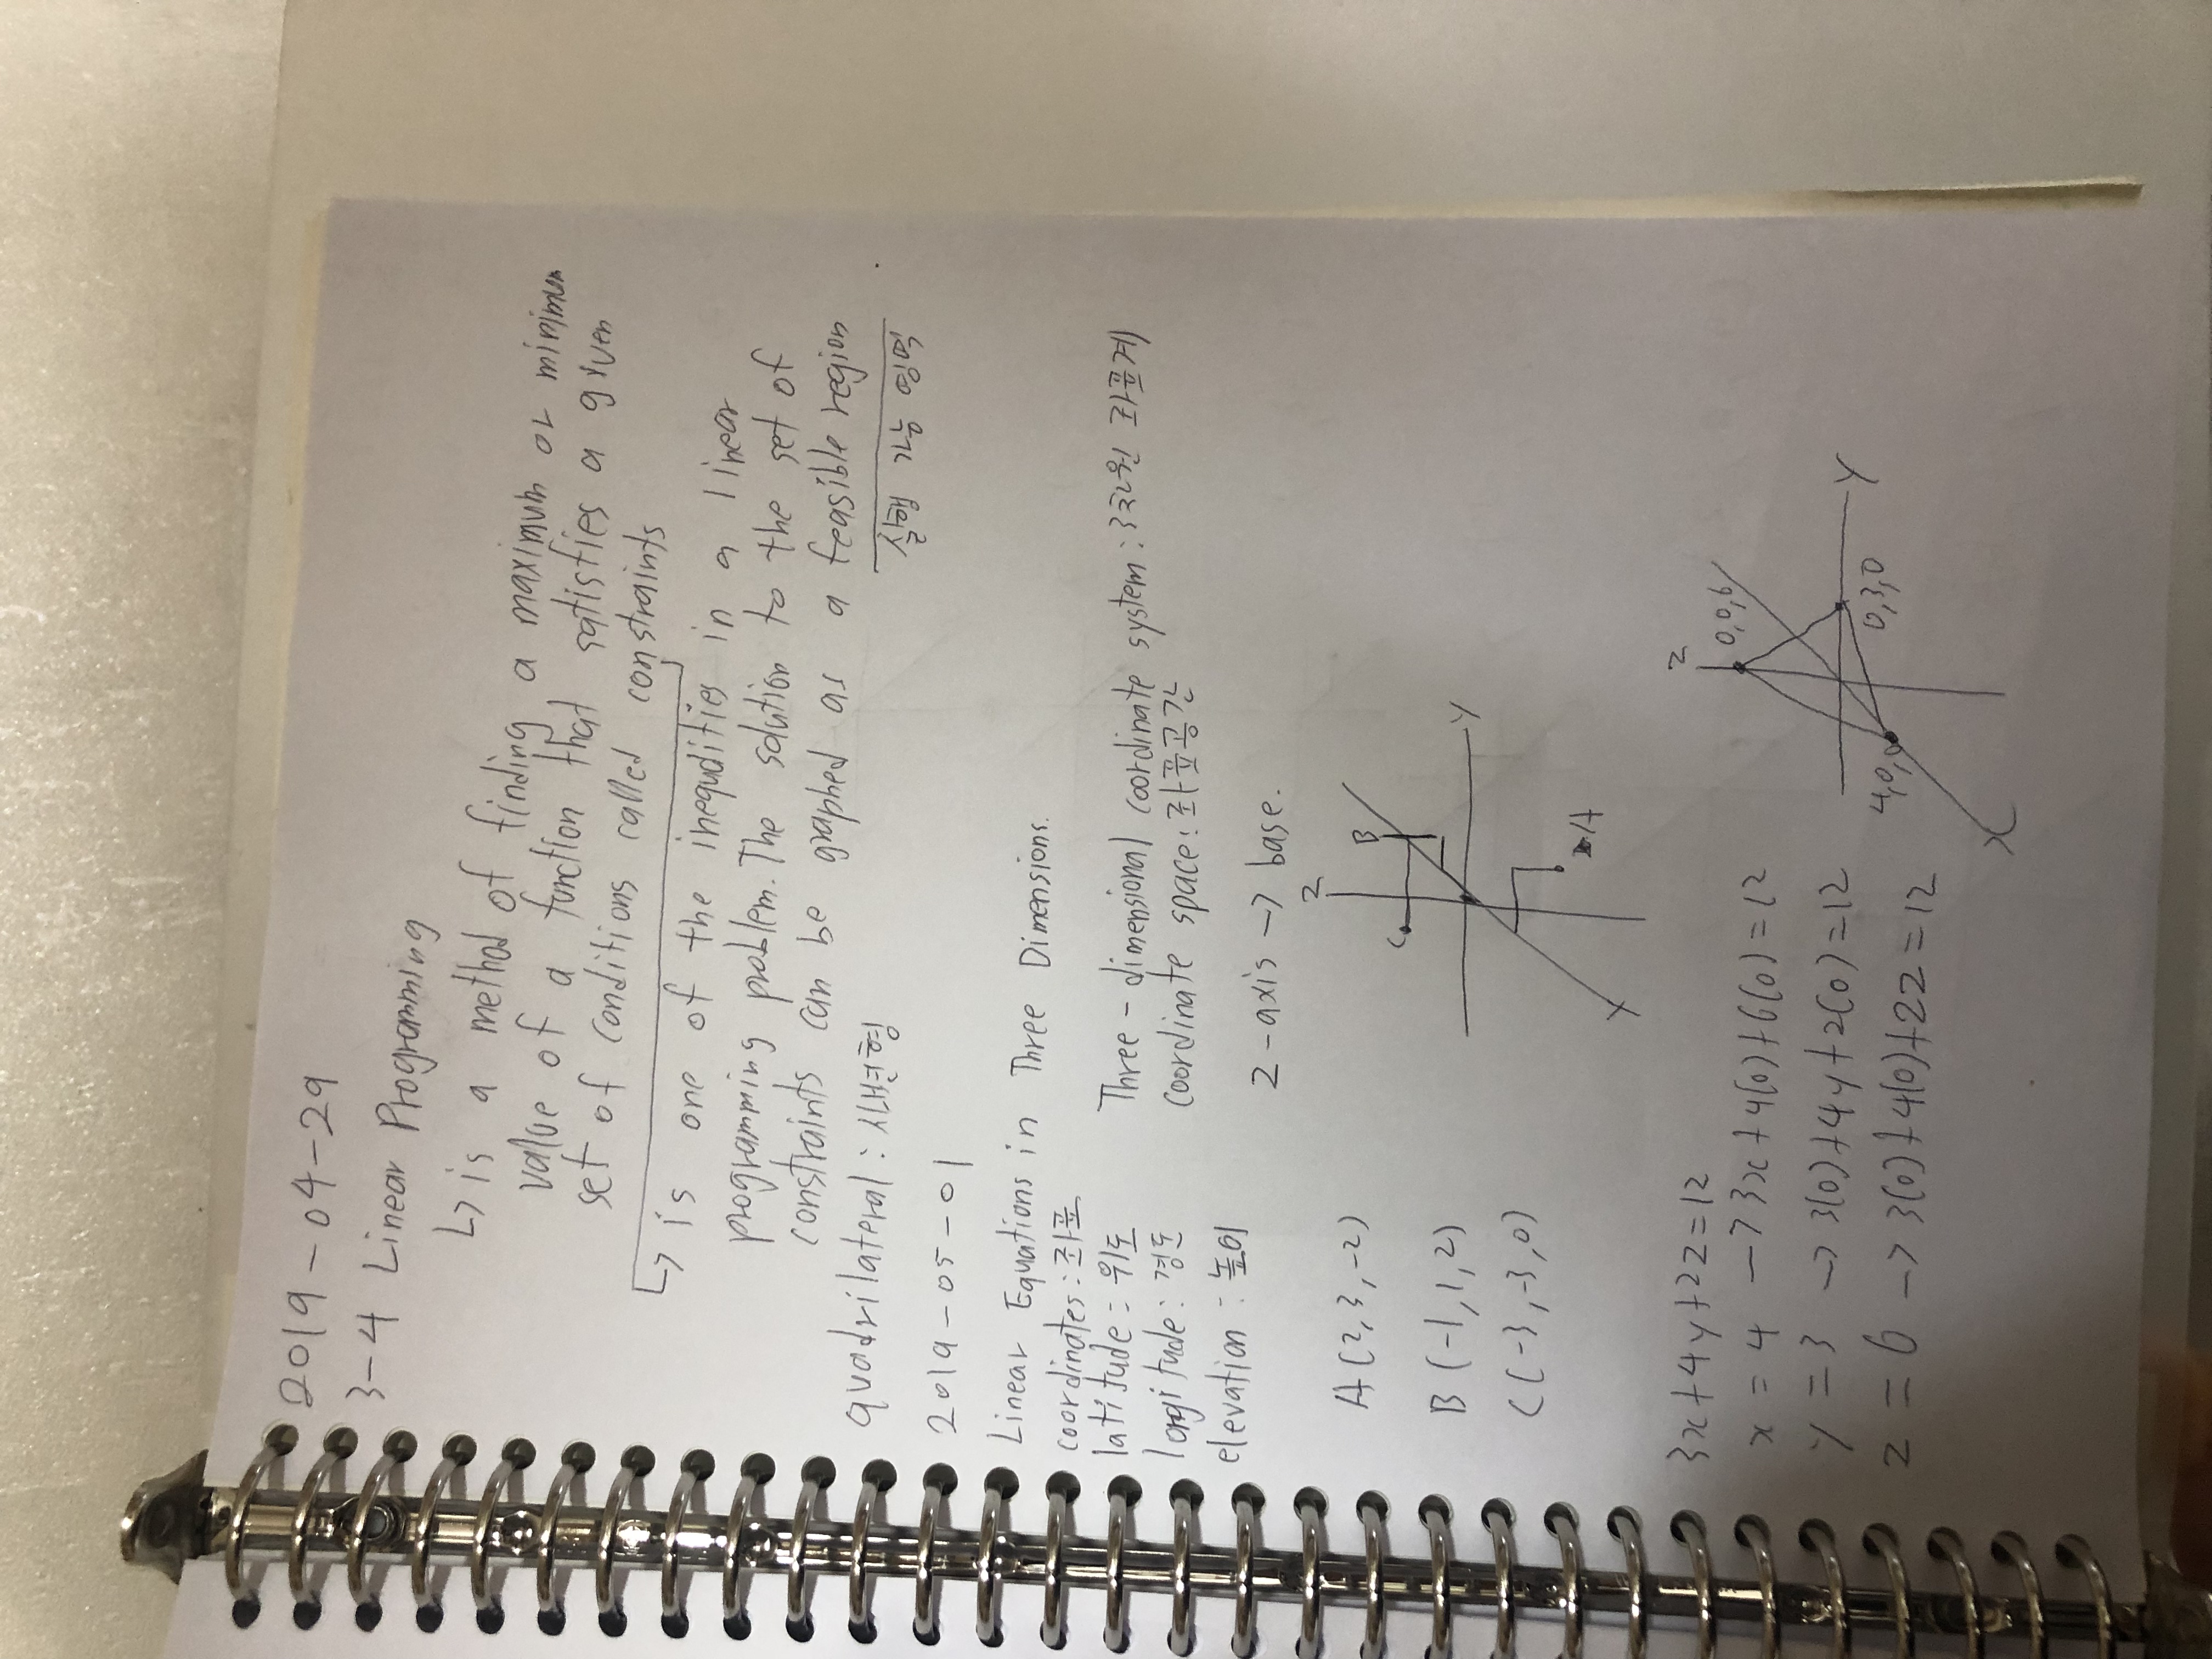 2019-04-29
3-4 Linear Programming
↳ is a method of finding a maximum or minimum
value of a function that satisfies a given
set of conditions called constraints
↳ is one of the inequalities in a linear
programming problem. The solution to the set of
constraints can be graphed as a feasible region
실행 가능 영역
quadrilateral : 사변형
2019-05-01
Linear Equations in Three Dimensions.
coordinates : 좌표
latitude : 위도
longitude : 경도
elevation : 높이
Three-dimensional coordinate system : 3차원 좌표계
coordinate space : 좌표공간
z-axis → base.
A(2,3,-2)
B(-1,1,2)
C(-3,-3,0)
z
B
C
y
A
x
3x+4y+2z=12
x=4 → 3x+4(0)+6(0)=12
y=3 → 3(0)+4y+2(0)=12
z=6 → 3(0)+4(0)+2z=12
z
0,0,6
y
0,3,0
4,0,0
x